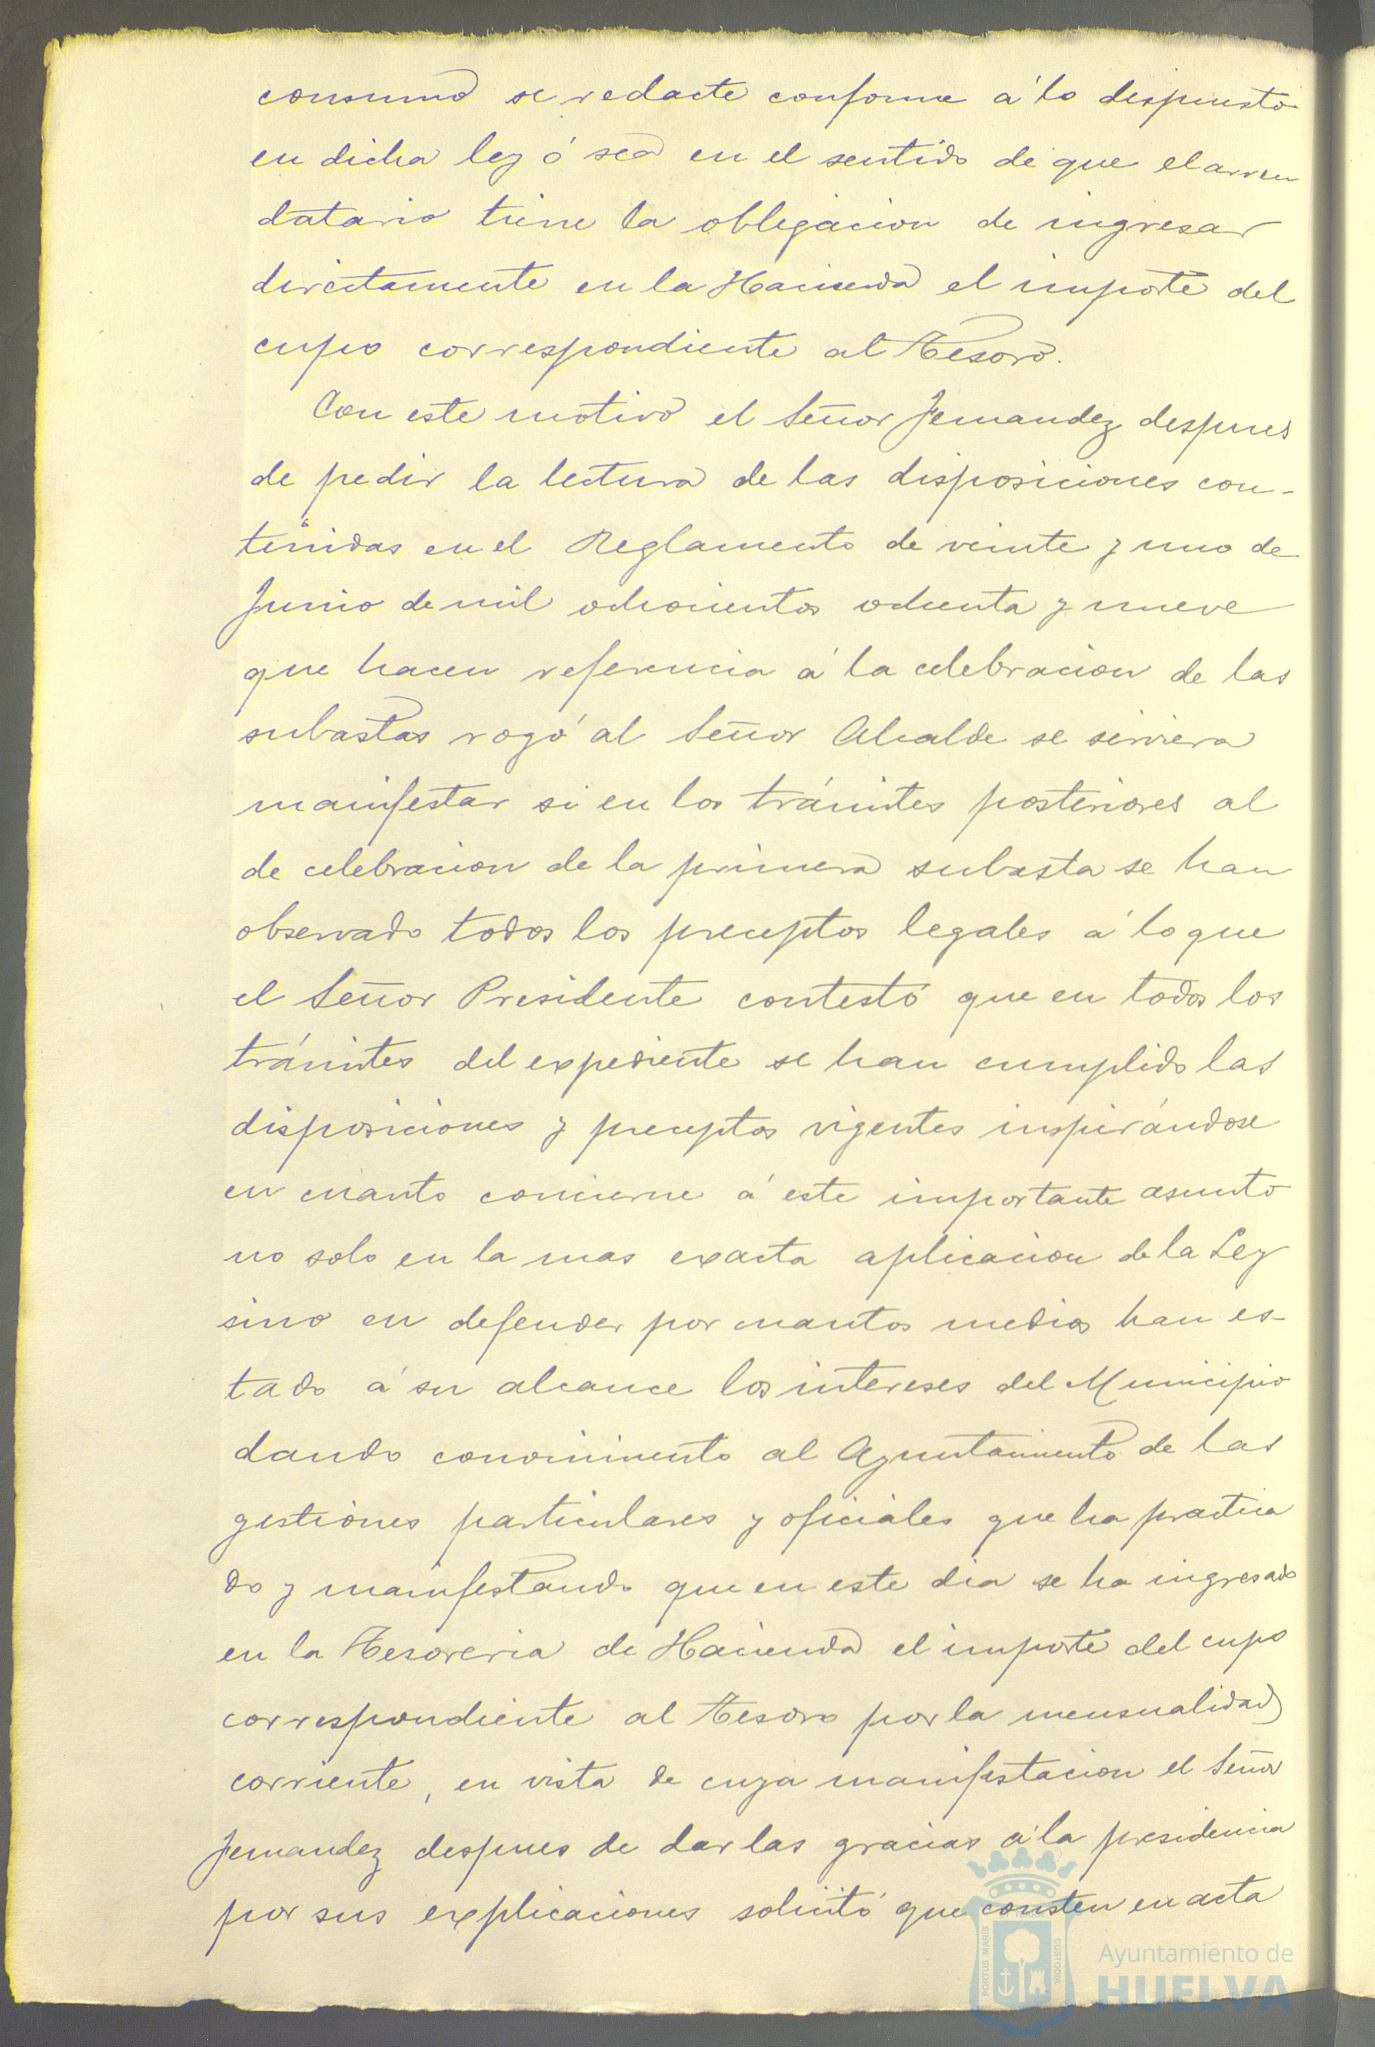 consumo se redacte conforme á lo despuesto
en dicha ley ó sea en el sentido de que el arren
datario tiene la obligacion de ingresar
directamente en la Hacienda el importe del
cupo correspondiente al Tesoro.
Con este motivo el Señor Fernandez despues
de pedir la lectura de las disposiciones con-
tenidas en el Reglamento de veinte y uno de
Junio de mil ochocientos ochenta y nueve
que hacen referencia á la celebracion de las
subastas rogó al Señor Alcalde se sirviera
manifestar si en los trámites posteriores al
de celebracion de la primera subasta se han
observado todos los preceptos legales á lo que
el Señor Presidente contestó que en todos los
trámites del expediente se han cumplido las
disposiciones y preceptos vigentes inspirándose
en cuanto concierne á este importante asunto
no solo en la mas exacta aplicacion de la Ley
sino en defender por cuantos medios han es-
tado á su alcance los intereses del Municipio
dando conocimiento al Ayuntamiento de las
gestiones particulares y oficiales que ha practica
do y manifestando que en este dia se ha ingresado
en la Tesoreria de Hacienda el importe del cupo
correspondiente al Tesoro por la mensualidad
corriente, en vista de cuya manifestacion el Señor
Fernandez despues de dar las gracias á la presidencia
por sus explicaciones solicitó que consten en acta
PORTUS MARIS CUSTODIA
Ayuntamiento de
HUELVA